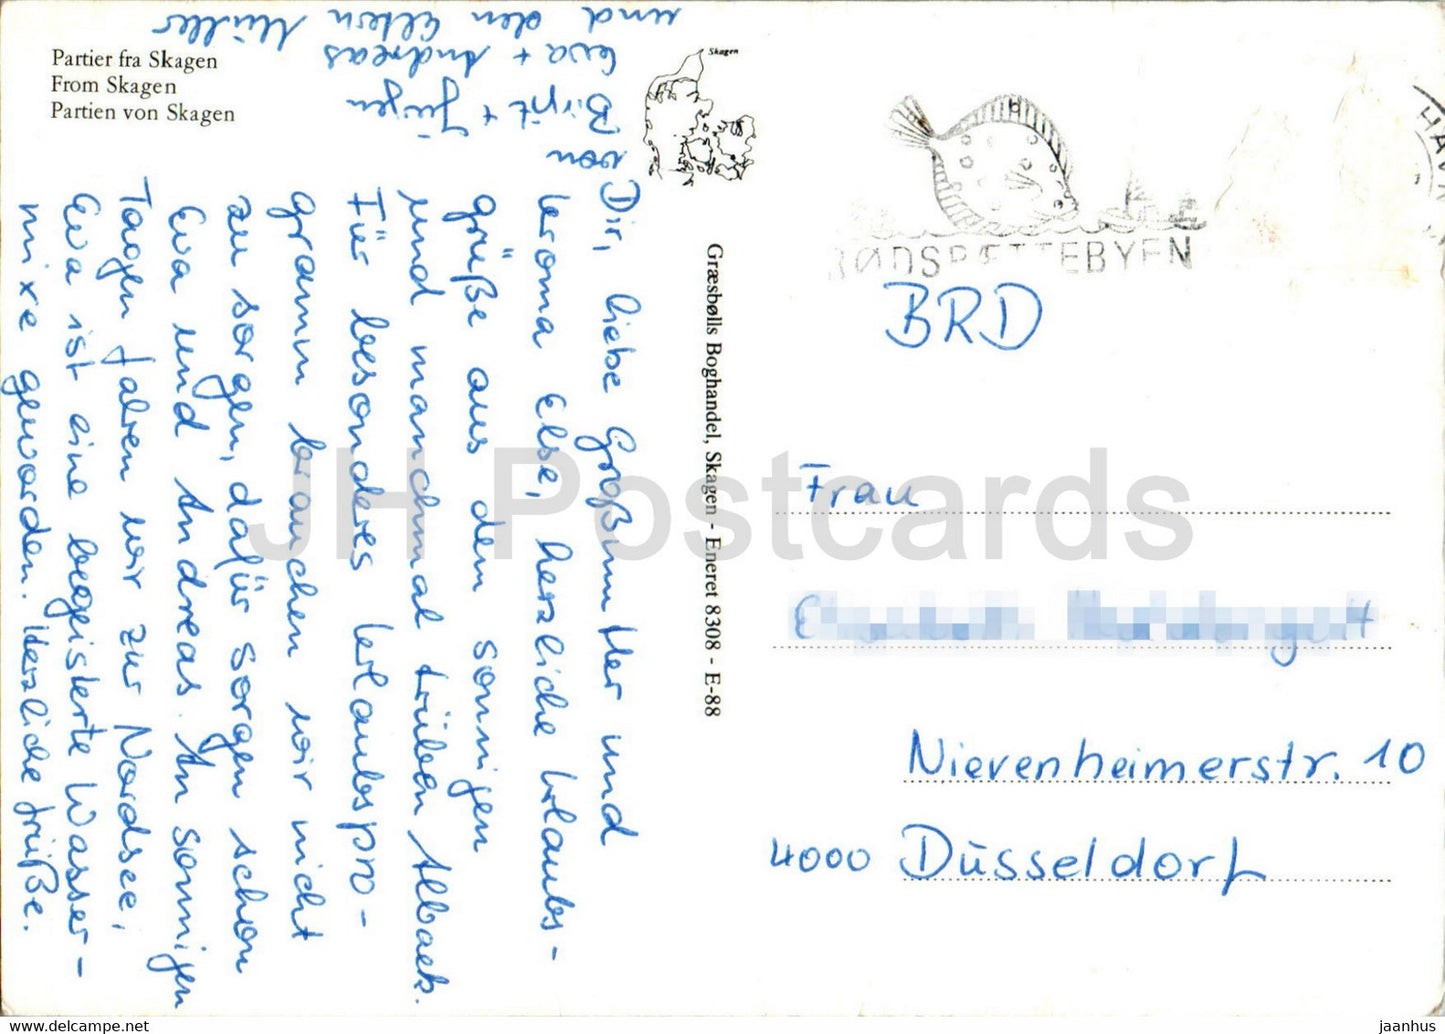 Partier fra Skagen
From Skagen
Partien von Skagen
Skagen
Græsbølls Boghandel, Skagen - Eneret 8308 - E-88
RØDSPÆTTEBYEN
HAVN
BRD
Frau
Nievenheimerstr. 10
4000 Düsseldorf
Dir, liebe Großmutter und
Uroma Else, herzliche Urlaubs-
grüße aus dem sonnigen
und manchmal trüben Albaek.
Für besonderes Urlaubspro-
gramm brauchen wir nicht
zu sorgen, dafür sorgen schon
Eva und Andreas. An sonnigen
Tagen fahren wir zur Nordsee,
Eva ist eine begeisterte Wasser-
nixe geworden. Herzliche Grüße.
von Birgit + Jürgen
Eva + Andreas
und den Eltern Müller
JH Postcards
Posted on www.delcampe.net
jaanhus